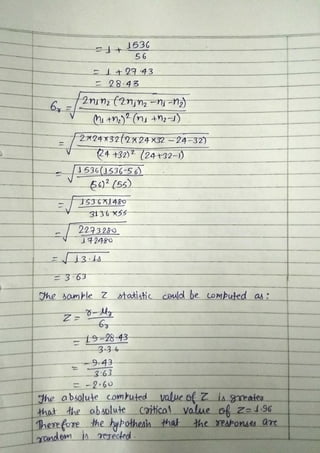 = 1 + 1536
56
= 1 + 27.43
= 28.43
σr = √ 2n1n2 (2n1n2 - n1 - n2)
(n1 + n2)² (n1 + n2 - 1)
= √ 2×24×32 (2×24×32 - 24 - 32)
(24 + 32)² (24 + 32 - 1)
= √ 1536 (1536 - 56)
(56)² (55)
= √ 1536 × 1480
3136 × 55
= √ 2273280
172480
= √ 13.18
= 3.63
The sample Z statistic could be computed as :
Z = r - μr
σr
= 19 - 28.43
3.36
= -9.43
3.63
= -2.60
The absolute computed value of Z is greater
that the absolute critical value of Z = 1.96
Therefore the hypothesis that the responses are
random is rejected.